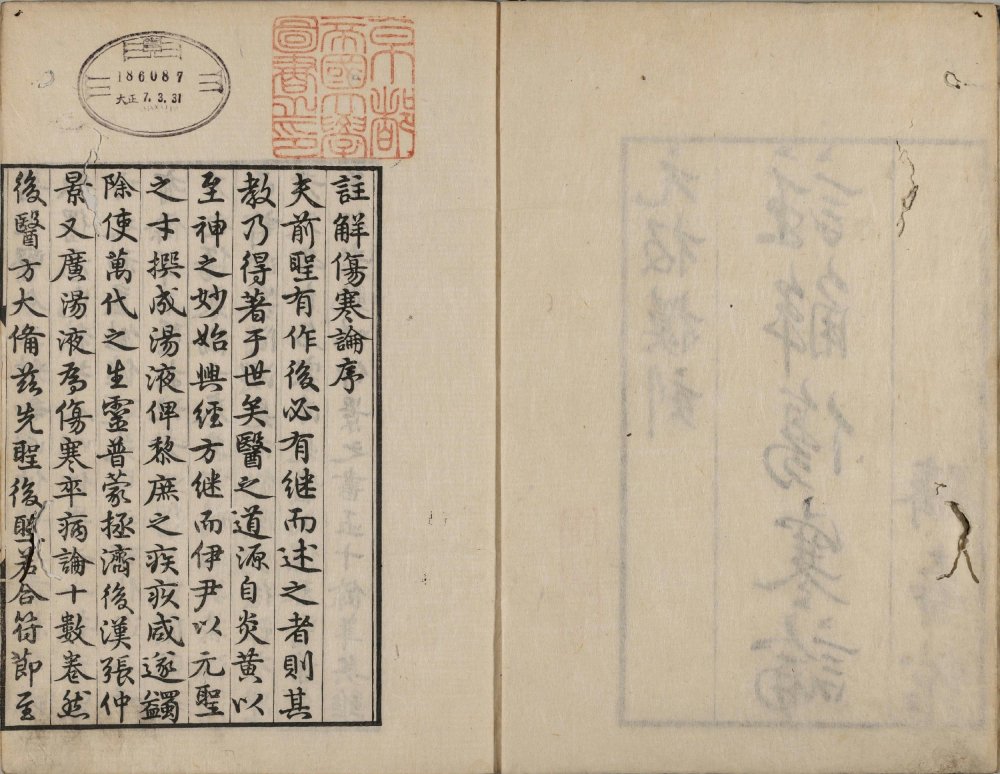 京都
帝國大學
圖書之印
186087
大正 7.3.31
註解傷寒論序
夫前聖有作後必有继而述之者則其
教乃得著于世矣醫之道源自炎黄以
至神之妙始興經方继而伊尹以元聖
之才撰成湯液俾黎庶之疾疢咸遂蠲
除使萬代之生靈普蒙拯濟後漢張仲
景又廣湯液為傷寒卒病論十數卷然
後醫方大備兹先聖後聖若合符節至